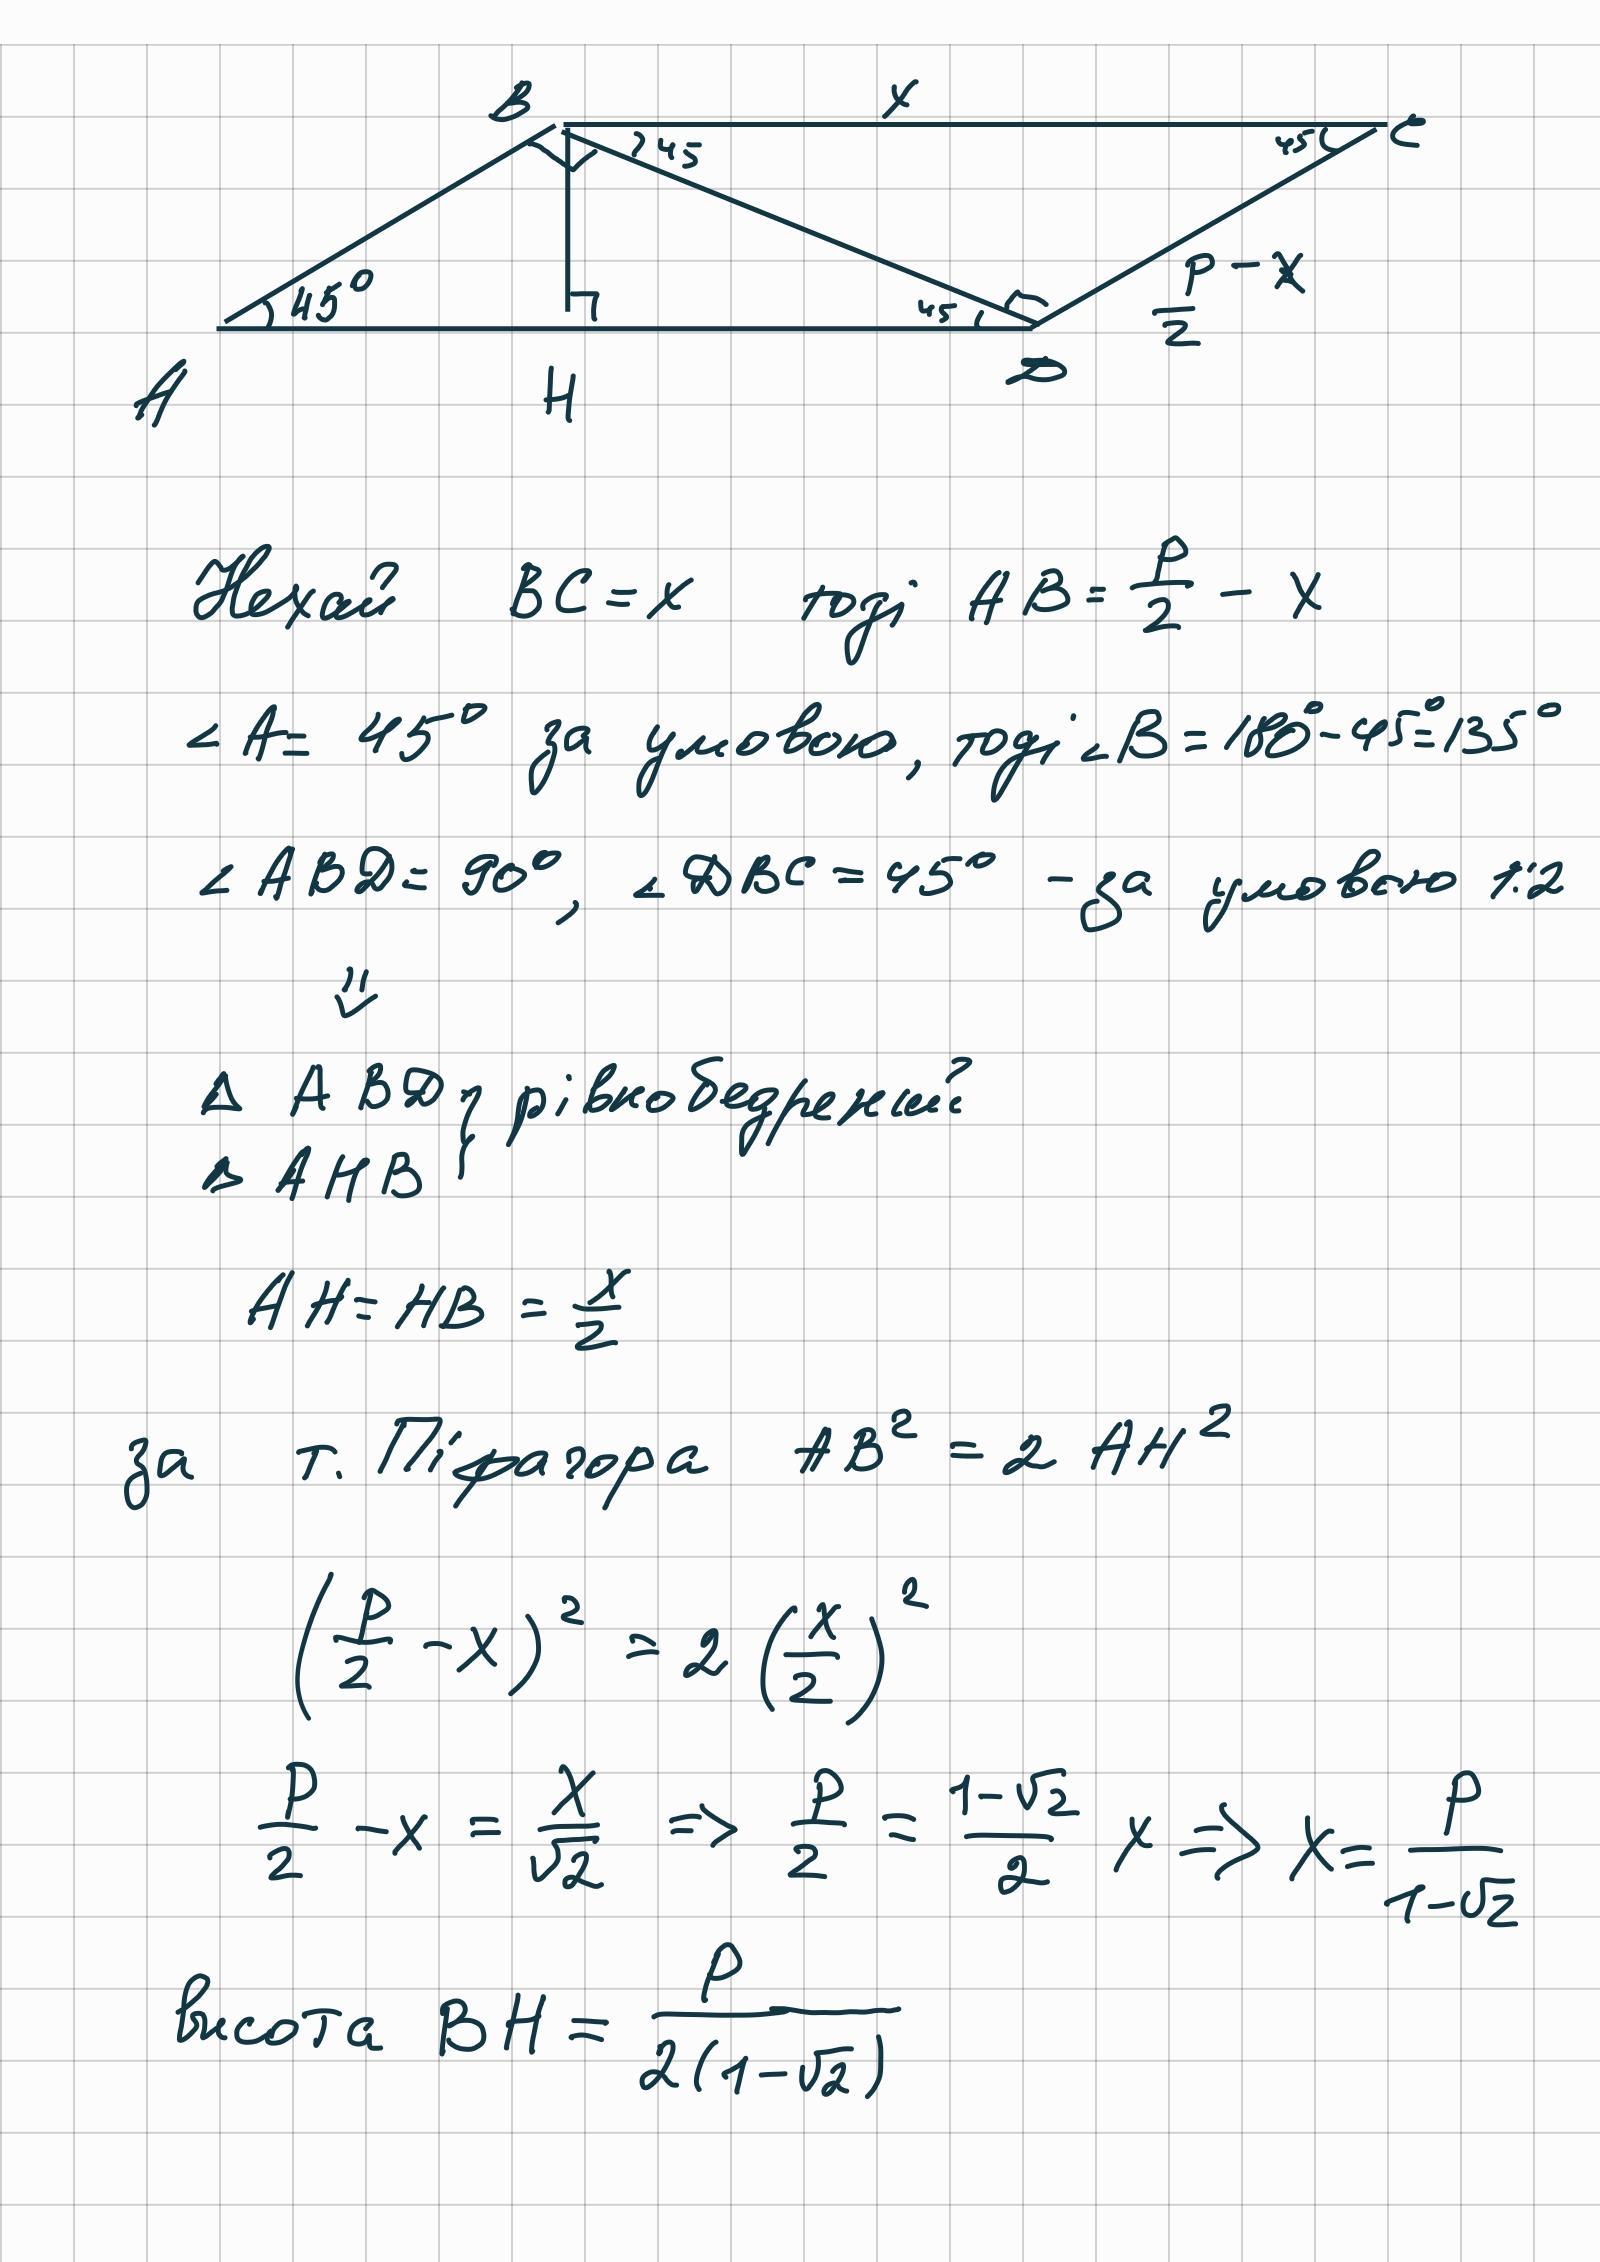 B x C
45 45
45° 45 P/2 - x
A H D
Нехай BC = x тоді AB = P/2 - x
∠A = 45° за умовою, тоді ∠B = 180° - 45° = 135°
∠ABD = 90°, ∠DBC = 45° - за умовою 1:2
⇓
Δ ABD } рівнобедрений
Δ AHB
AH = HB = x/2
за т. Піфагора AB² = 2 AH²
(P/2 - x)² = 2 (x/2)²
P/2 - x = x/√2 => P/2 = (1-√2)/2 x => x = P/(1-√2)
висота BH = P/(2(1-√2))